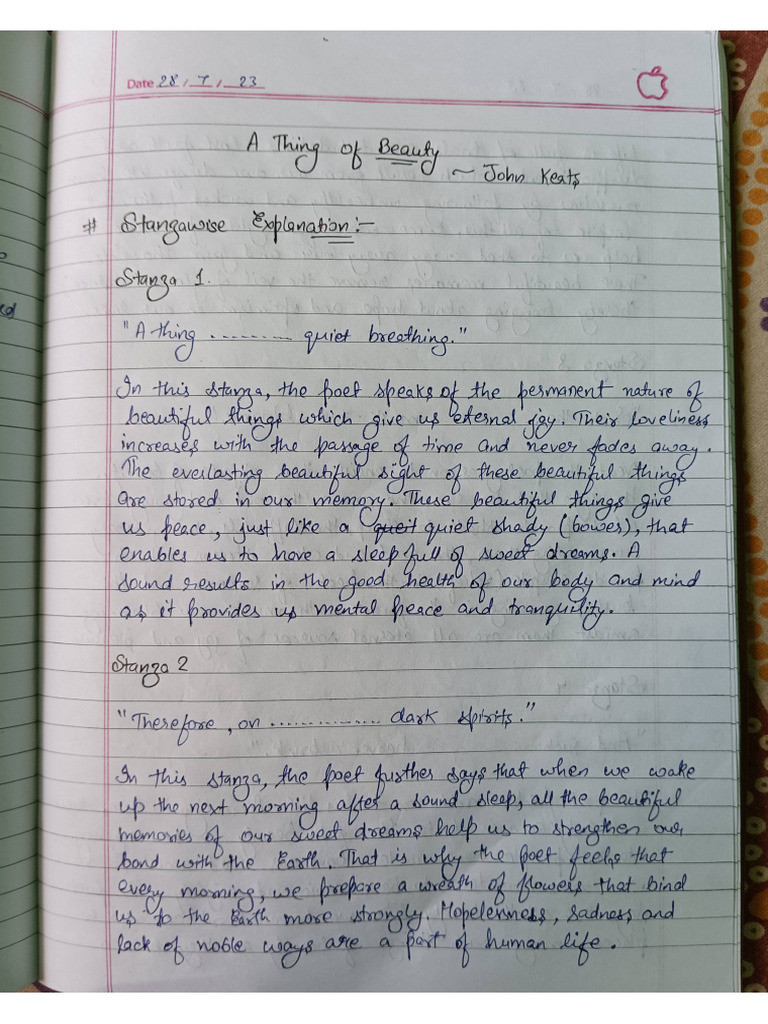 Date 28 / 7 / 23
A Thing of Beauty
~ John Keats
# Stanzawise Explanation:-
Stanza 1.
"A thing .......... quiet breathing."
In this stanza, the poet speaks of the permanent nature of
beautiful things which give us eternal joy. Their loveliness
increases with the passage of time and never fades away.
The everlasting beautiful sight of these beautiful things
are stored in our memory. These beautiful things give
us peace, just like a queit quiet shady (bower), that
enables us to have a sleep full of sweet dreams. A
sound results in the good health of our body and mind
as it provides us mental peace and tranquility.
Stanza 2
"Therefore, on ................ dark spirits."
In this stanza, the poet further says that when we wake
up the next morning after a sound sleep, all the beautiful
memories of our sweet dreams help us to strengthen our
bond with the Earth. That is why the poet feels that
every morning, we prepare a wreath of flowers that bind
us to the Earth more strongly. Hopelenness, sadness and
lack of noble ways are a part of human life.